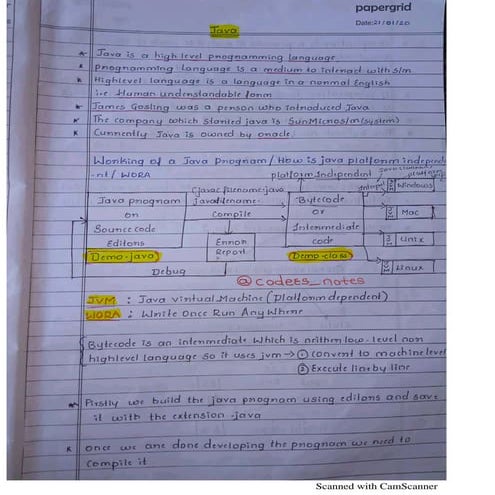 papergrid
Date: 21/01/20
Java
* Java is a high level programming language.
* programming language is a medium to interact with s/m
* Highlevel language is a language in a normal English
i.e Human understandable form
* James Gosling was a person who introduced Java
* The company which started java is SunMicros/m(system)
* Currently Java is owned by oracle.
Working of a Java Program/How is java platform independ
-nt/WORA
platform Independent
Java program
or
Source code
Editors
Demo.java
Cjavac filename.java
javafilename.
Compile
Error
Report
Debug
Bytecode
or
Intermediate
code
Demo.class
Windows
Mac
Unix
Linux
@codees_notes
JVM : Java Virtual Machine (platform dependent)
WORA : Write Once Run Any Where
Bytecode is an intermediate which is neither low-level nor
highlevel language so it uses jvm → ① convert to machine level
② Execute line by line
* Firstly we build the java program using editors and save
it with the extension .java
* once we are done developing the program we need to
compile it
Scanned with CamScanner